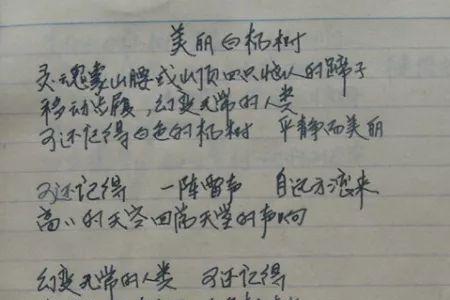 美丽白杨树
灵魂象山腰或山顶四只恼人的蹄子
移动步履,幻变无常的人类
可还记得白色的杨树 平静而美丽
可还记得 一阵雷声 自远方滚来
高〻的天空回荡天堂的声响
幻变无常的人类 可还记得